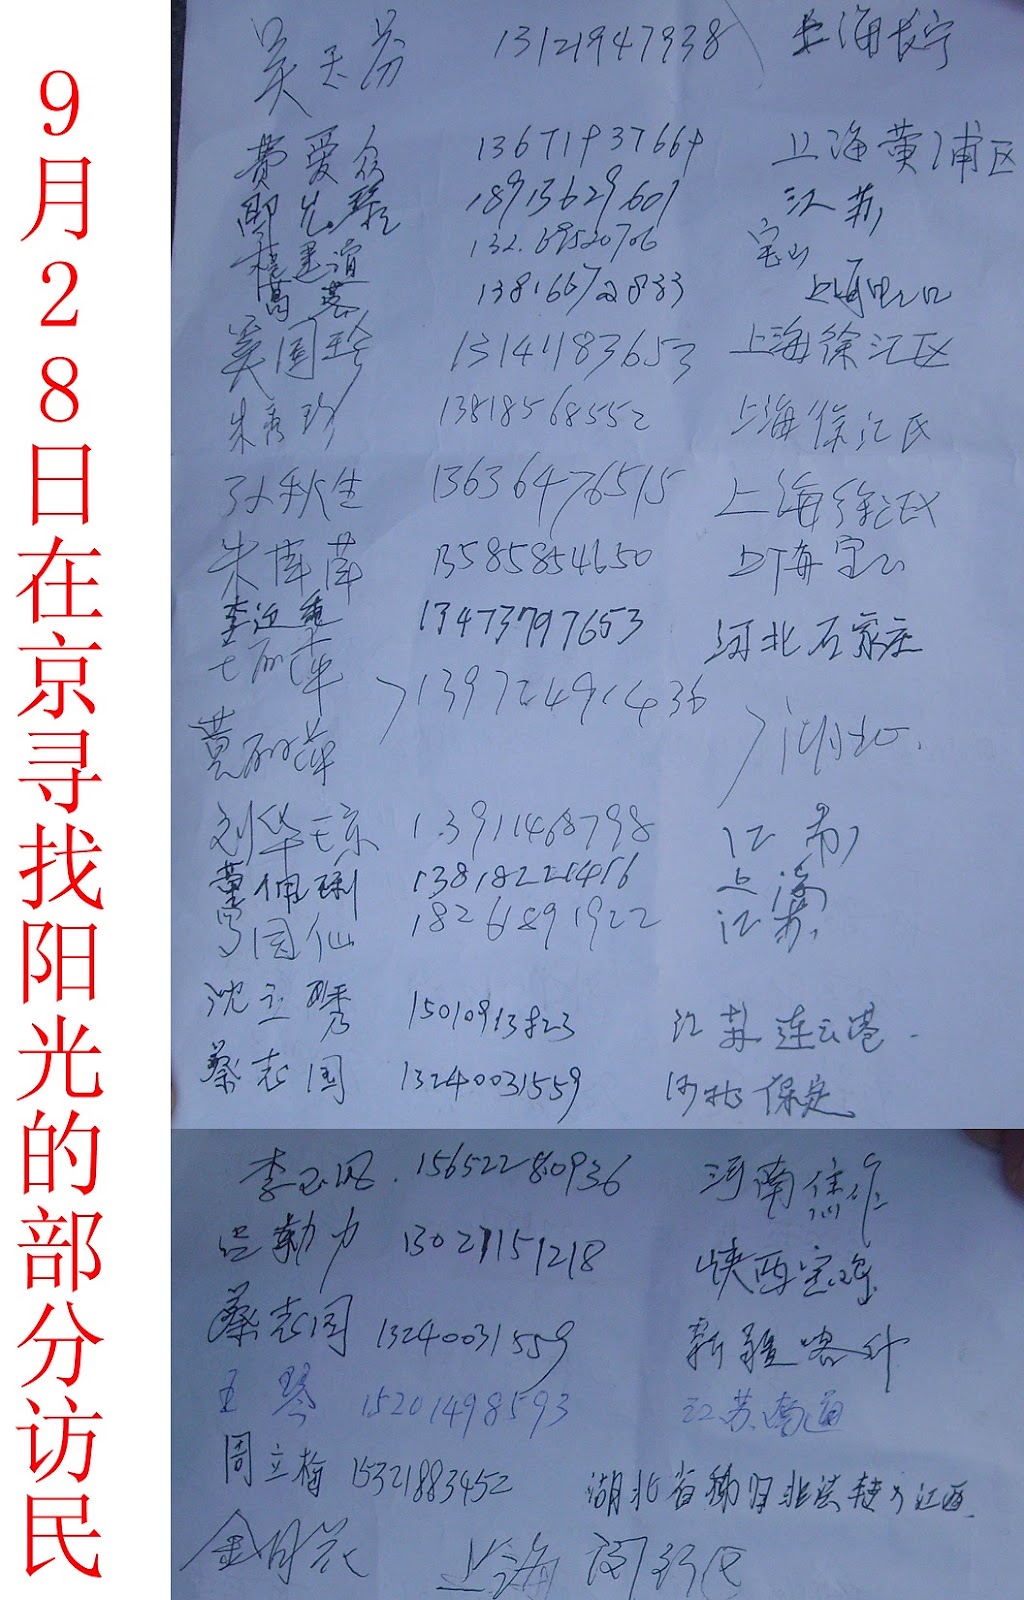 9月28日在京寻找阳光的部分访民
吴玉芬 13121947938 上海长宁
费爱众 13671937664 上海黄浦区
18915629609 江苏
132.69520706 宝山
13816672833 上海虹口
吴国珍 13141183653 上海徐汇区
朱秀珍 13818568552 上海徐汇区
孙秋生 13636476515 上海徐汇区
朱 13585854650 上海宝山
李 13473797653 河北石家庄
13972491436 湖北
黄丽萍
刘华 13911468798 江苏
董佩 13818221416 上海
国仙 18261891922 江苏
沈立秀 15010913823 江苏连云港
蔡志国 13240031559 河北保定
李玉凤 15652280936 河南焦作
吕勤力 13021151218 陕西宝鸡
蔡志国 13240031559 新疆喀什
王琴 15201498593 江苏南通
周立梅 15321883452 湖北省秭归非法 江西
金月花 上海闵行区